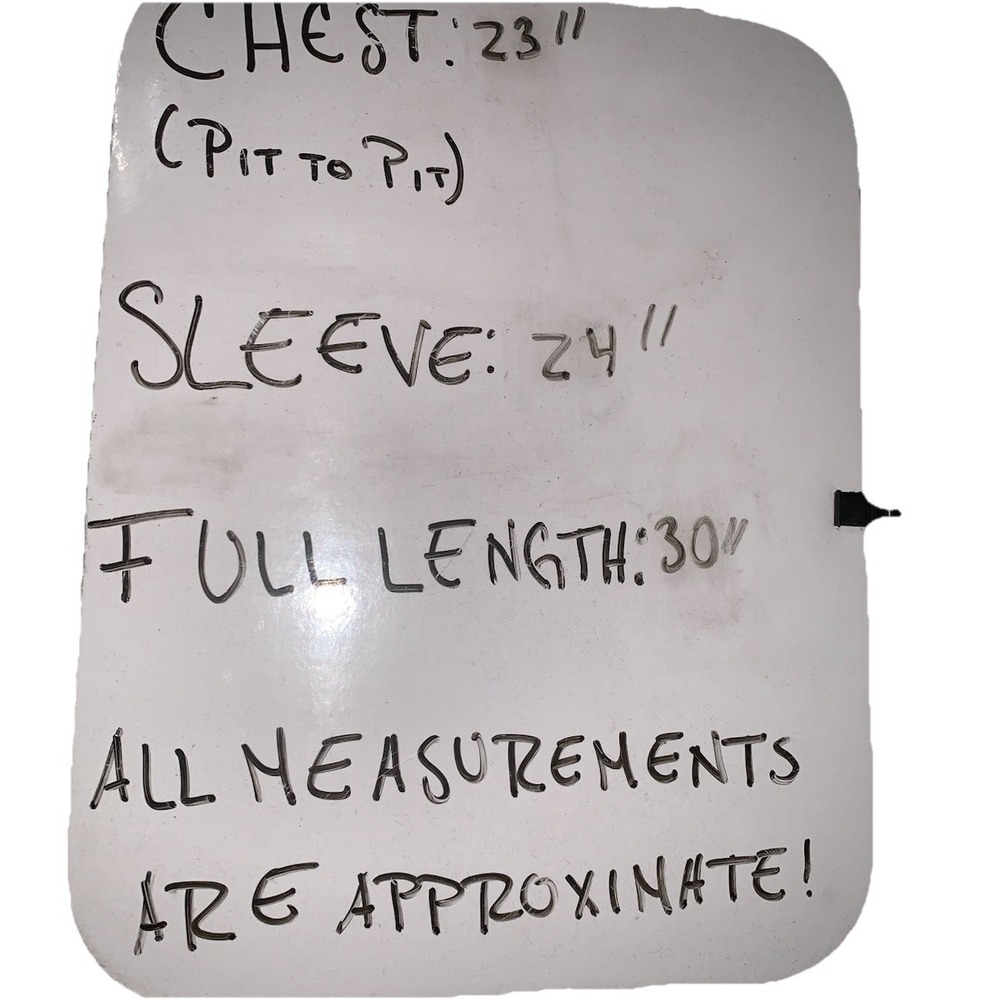 CHEST: 23"
(PIT TO PIT)
SLEEVE: 24"
FULL LENGTH: 30"
ALL MEASUREMENTS
ARE APPROXIMATE!